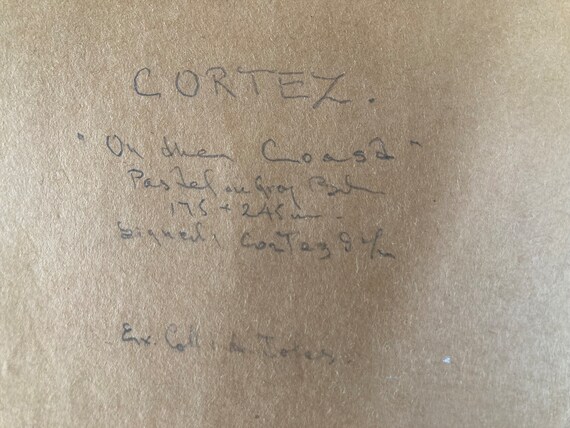 CORTEZ.
"On the Coast"
Pastel on Gray
175 + 245 m
Signed: Cortez
Ex. Coll.